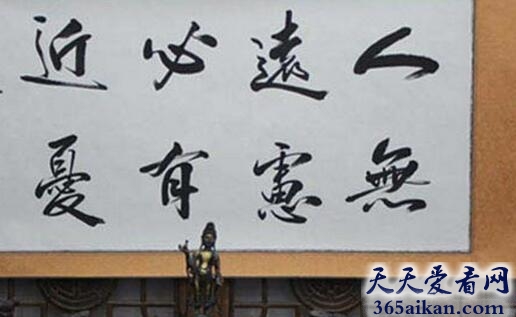 人無
遠慮
必有
近憂
天天爱看网
365aikan.com